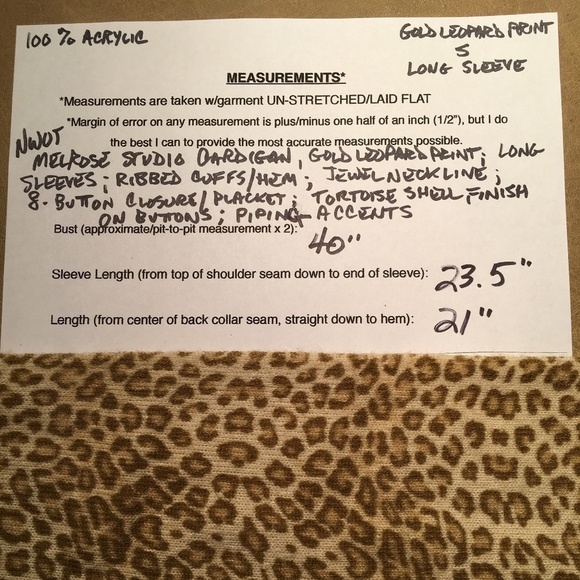 100 % ACRYLIC
GOLD LEOPARD PRINT
S
LONG SLEEVE
MEASUREMENTS*
*Measurements are taken w/garment UN-STRETCHED/LAID FLAT
*Margin of error on any measurement is plus/minus one half of an inch (1/2"), but I do
the best I can to provide the most accurate measurements possible.
NWOT
MELROSE STUDIO CARDIGAN, GOLD LEOPARD PRINT; LONG
SLEEVES; RIBBED CUFFS/HEM; JEWEL NECKLINE;
8-BUTTON CLOSURE/PLACKET; TORTOISE SHELL FINISH
ON BUTTONS; PIPING ACCENTS
Bust (approximate/pit-to-pit measurement x 2): 40"
Sleeve Length (from top of shoulder seam down to end of sleeve): 23.5"
Length (from center of back collar seam, straight down to hem): 21"